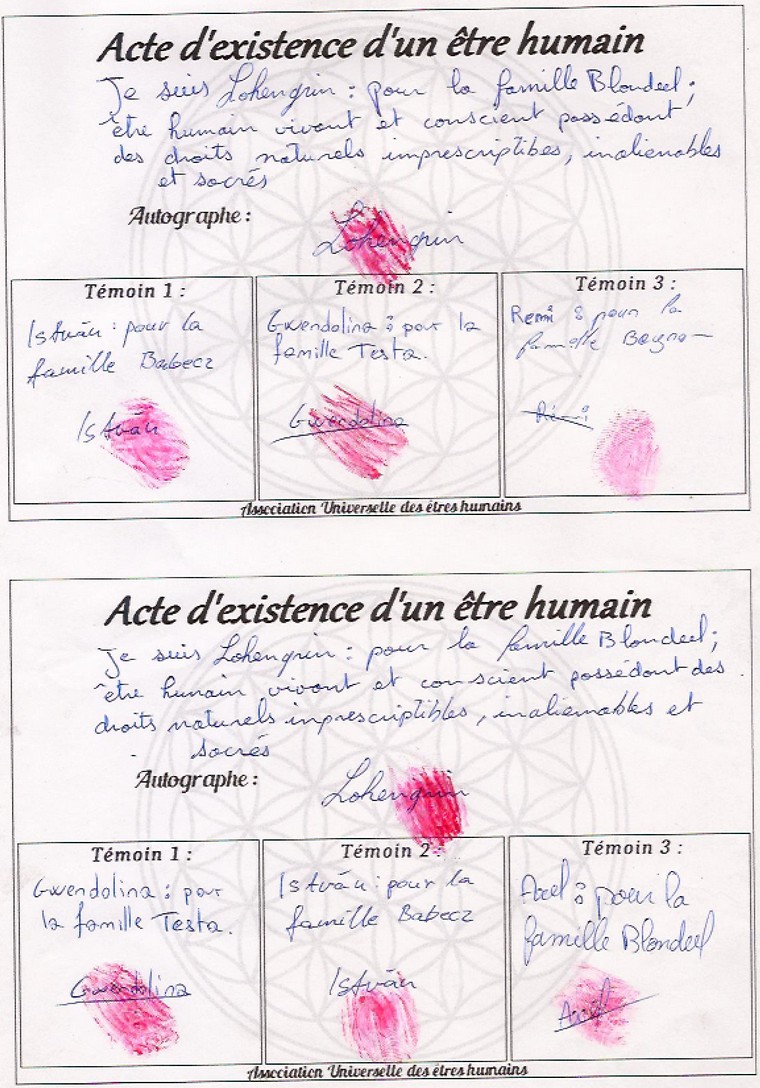 Acte d'existence d'un être humain
Je suis Lohengrin : pour la famille Blondeel ;
être humain vivant et conscient possédant
des droits naturels imprescriptibes, inalienables
et sacrés
Autographe :
Lohengrin
Témoin 1 :
István : pour la
famille Babecz
István
Témoin 2 :
Gwendolina : pour la
famille Testa.
Gwendolina
Témoin 3 :
Remi : pour la
famille
Rémi
Association Universelle des êtres humains
Acte d'existence d'un être humain
Je suis Lohengrin : pour la famille Blondeel ;
être humain vivant et conscient possédant des
droits naturels inprescriptibles, inaliénables et
sacrés
Autographe :
Lohengrin
Témoin 1 :
Gwendolina : pour
la famille Testa.
Gwendolina
Témoin 2 :
István : pour la
famille Babecz
István
Témoin 3 :
Axel : pour la
famille Blondeel
Axel
Association Universelle des êtres humains